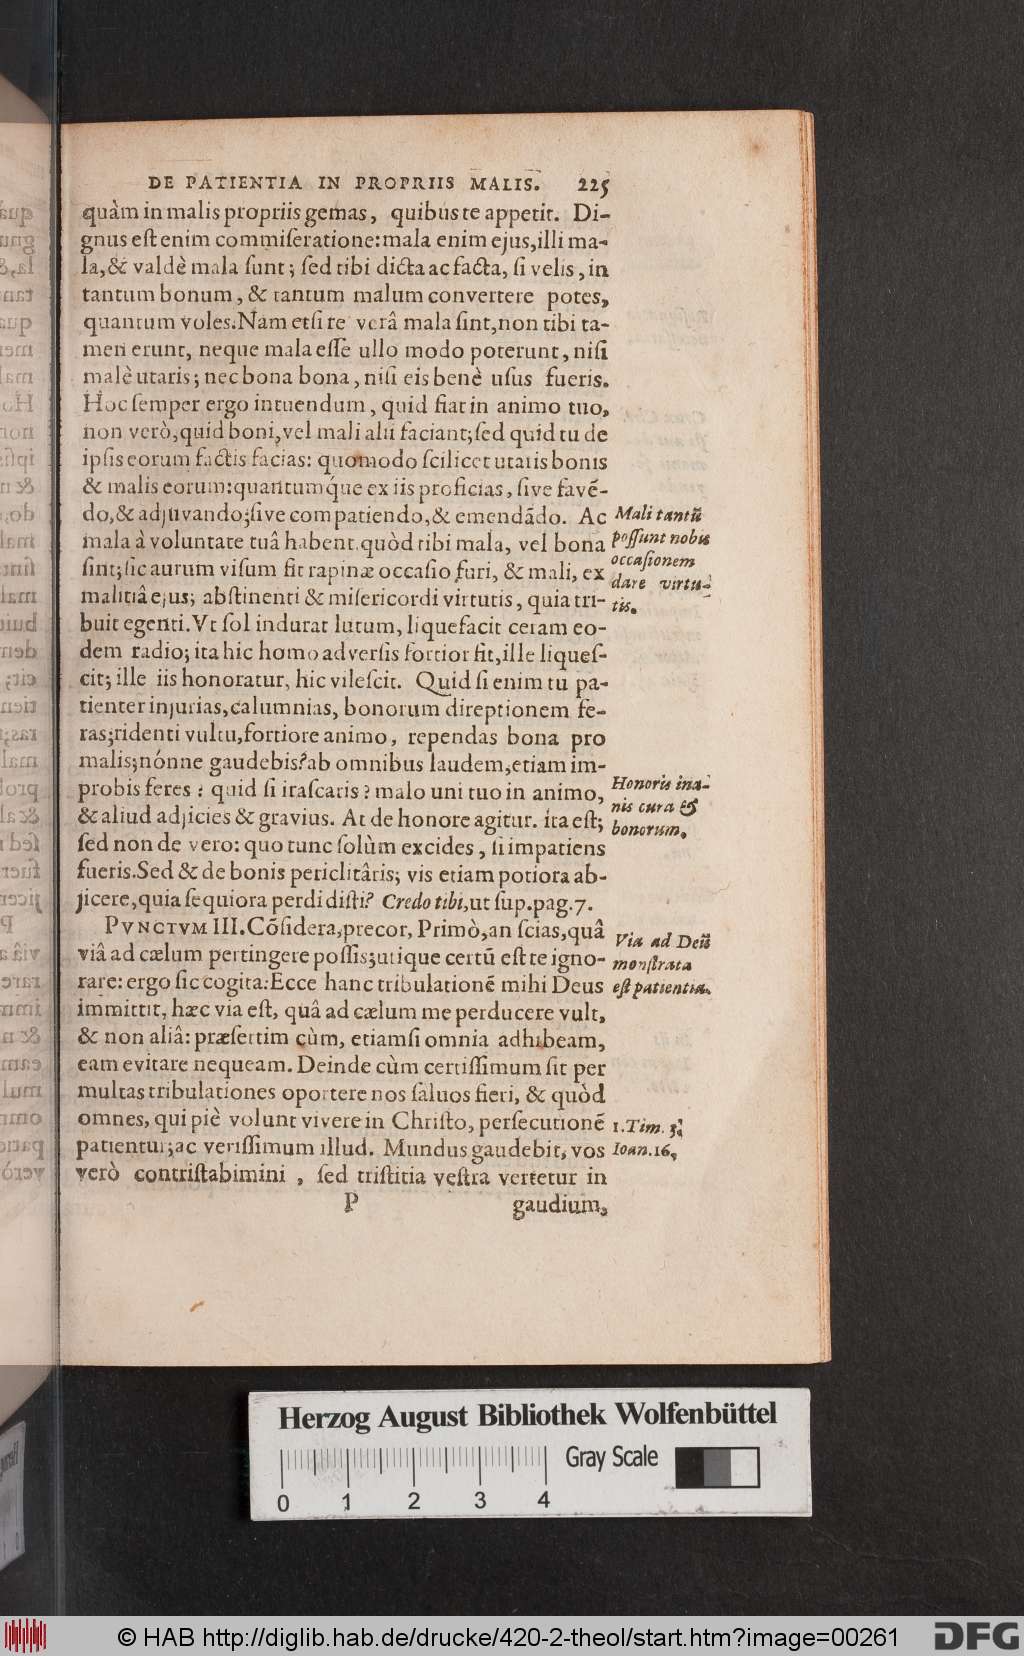 DE PATIENTIA IN PROPRIIS MALIS. 225
quàm in malis propriis gemas, quibus te appetit. Di-
gnus est enim commiseratione: mala enim ejus, illi ma-
la, & valdè mala sunt; sed tibi dicta ac facta, si velis, in
tantum bonum, & tantum malum convertere potes,
quantum voles. Nam etsi re verâ mala sint, non tibi ta-
men erunt, neque mala esse ullo modo poterunt, nisi
malè utaris; nec bona bona, nisi eis benè usus fueris.
Hoc semper ergo intuendum, quid fiat in animo tuo,
non verò, quid boni, vel mali alii faciant; sed quid tu de
ipsis eorum factis facias: quomodo scilicet utaris bonis
& malis eorum: quantumq́ue ex iis proficias, sive favē-
do, & adjuvando; sive compatiendo, & emendādo. Ac
mala à voluntate tuâ habent. quòd tibi mala, vel bona
sint; sic aurum visum fit rapinæ occasio furi, & mali, ex
malitiâ ejus; abstinenti & misericordi virtutis, quia tri-
buit egenti. Vt sol indurat lutum, liquefacit ceram eo-
dem radio; ita hic homo adversis fortior fit, ille liques-
cit; ille iis honoratur, hic vilescit. Quid si enim tu pa-
tienter injurias, calumnias, bonorum direptionem fe-
ras; ridenti vultu, fortiore animo, rependas bona pro
malis; nónne gaudebis? ab omnibus laudem, etiam im-
probis feres: quid si irascaris? malo uni tuo in animo,
& aliud adjicies & gravius. At de honore agitur. ita est;
sed non de vero: quo tunc solùm excides, si impatiens
fueris. Sed & de bonis periclitâris; vis etiam potiora ab-
jicere, quia sequiora perdidisti? Credo tibi, ut sup. pag. 7.
PVNCTVM III. Cōsidera, precor, Primò, an scias, quâ
viâ ad cælum pertingere possis; utique certū est te igno-
rare: ergo sic cogita: Ecce hanc tribulationē mihi Deus
immittit, hæc via est, quâ ad cælum me perducere vult,
& non aliâ: præsertim cùm, etiamsi omnia adhibeam,
eam evitare nequeam. Deinde cùm certissimum sit per
multas tribulationes oportere nos saluos fieri, & quòd
omnes, qui piè volunt vivere in Christo, persecutionē
patientur; ac verissimum illud. Mundus gaudebit, vos
verò contristabimini, sed tristitia vestra vertetur in
P gaudium,
Mali tantū
possunt nobis
occasionem
dare virtu-
tis.
Honoris ina-
nis cura &
bonorum.
Via ad Deū
monstrata
est patientia.
1. Tim. 3.
Ioan. 16.
Herzog August Bibliothek Wolfenbüttel
Gray Scale
0 1 2 3 4
© HAB http://diglib.hab.de/drucke/420-2-theol/start.htm?image=00261
DFG